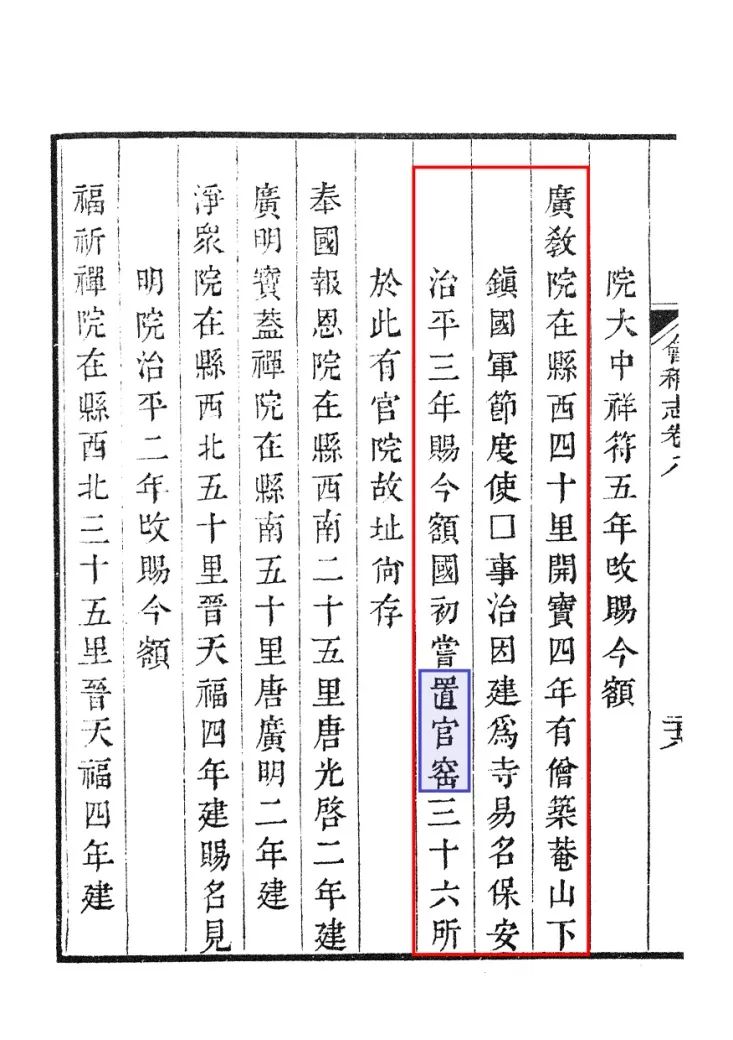 院大中祥符五年改賜今額
廣教院在縣西四十里開寶四年有僧築菴山下
鎮國軍節度使□事治因建爲寺易名保安
治平三年賜今額國初嘗置官窑三十六所
於此有官院故址尙存
奉國報恩院在縣西南二十五里唐光啓二年建
廣明寶蓋禪院在縣南五十里唐廣明二年建
淨衆院在縣西北五十里晉天福四年建賜名見
明院治平二年改賜今額
福祈禪院在縣西北三十五里晉天福四年建
會稽志卷八